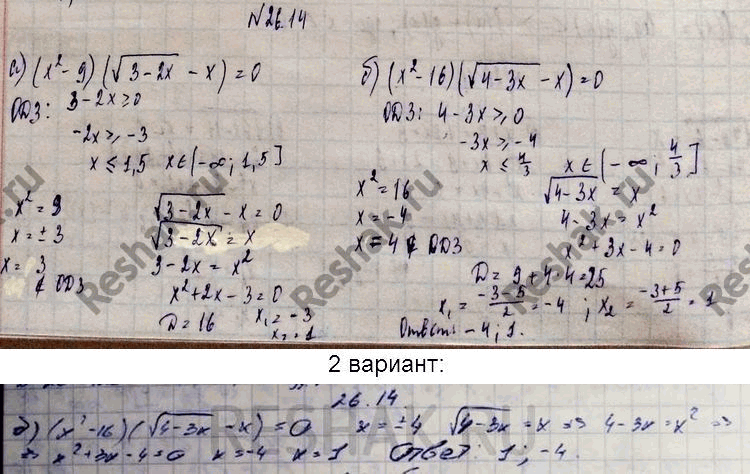 №26.14
а) (x² - 9)(√(3 - 2x) - x) = 0
ОДЗ: 3 - 2x ≥ 0
-2x ≥ -3
x ≤ 1,5 x ∈ (-∞; 1,5]
x² = 9
x = ±3
x = 3 ∉ ОДЗ
√(3 - 2x) - x = 0
√(3 - 2x) = x
3 - 2x = x²
x² + 2x - 3 = 0
D = 16 x₁ = -3
x₂ = 1
б) (x² - 16)(√(4 - 3x) - x) = 0
ОДЗ: 4 - 3x ≥ 0
-3x ≥ -4
x ≤ 4/3 x ∈ (-∞; 4/3]
x² = 16
x = -4
x = 4 ∉ ОДЗ
√(4 - 3x) = x
4 - 3x = x²
x² + 3x - 4 = 0
D = 9 + 4·4 = 25
x₁ = (-3 - 5)/2 = -4 ; x₂ = (-3 + 5)/2 = 1
Ответ: -4; 1.
2 вариант:
26.14
б) (x² - 16)(√(4 - 3x) - x) = 0 x = ±4 √(4 - 3x) = x => 4 - 3x = x² =>
=> x² + 3x - 4 = 0 x = -4 x = 1 Ответ: 1; -4.
Reshak.ru
Reshak.ru
Reshak.ru
RESHAK.RU